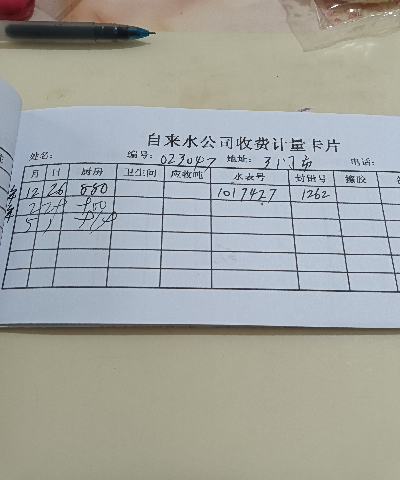 自来水公司收费计量卡片
姓名: 编号: 023047 地址: 31门市 电话:
月 日 厨房 卫生间 应收吨 水表号 封铅号 撤胶
12 26 880 1017427 1262
2
5 1